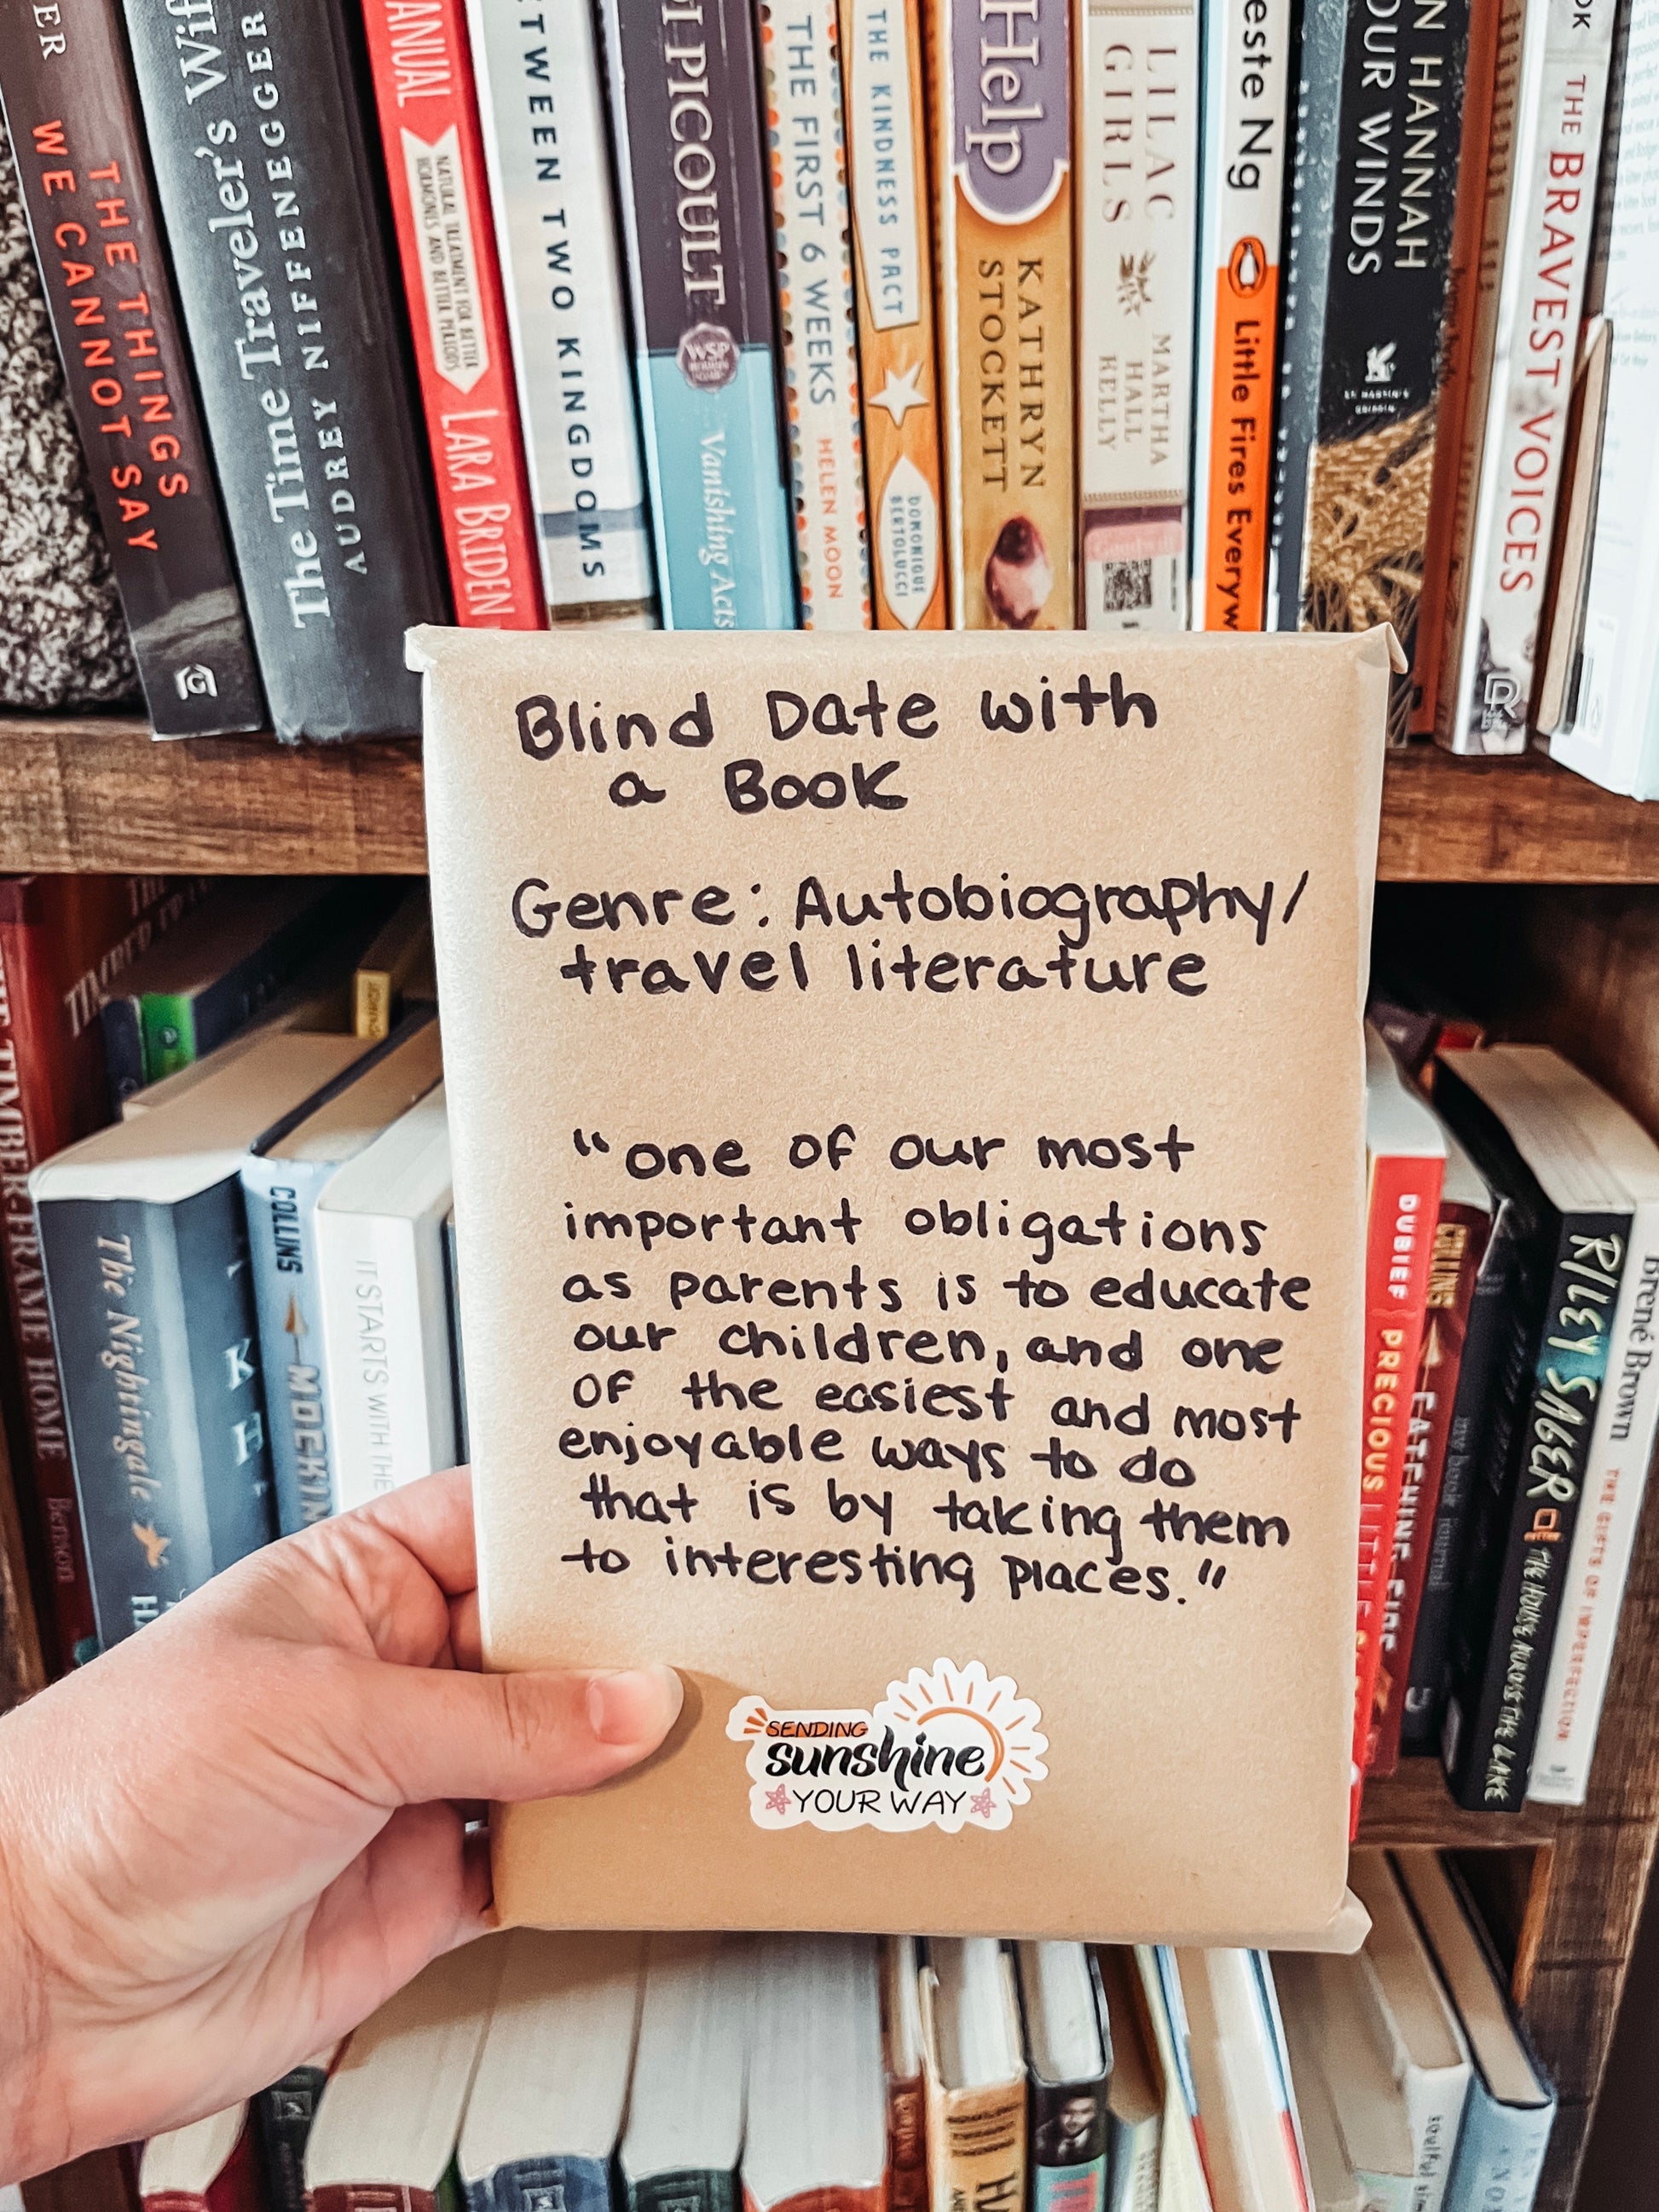 ER
THE THINGS
WE CANNOT SAY
G
The Time Traveler's Wif
AUDREY NIFFENEGGER
ANUAL
NATURAL TREATMENT FOR BETTER
HORMONES AND BETTER PERIODS
LARA BRIDEN
TWEEN TWO KINGDOMS
I PICOULT
WSP
Vanishing Acts
THE FIRST 6 WEEKS
HELEN MOON
THE KINDNESS PACT
DOMONIQUE
BERTOLUCCI
Help
KATHRYN
STOCKETT
LILAC
GIRLS
MARTHA
HALL
KELLY
este Ng
Little Fires Everyw
N HANNAH
OUR WINDS
ST. MARTIN'S
GRIFFIN
OK
THE BRAVEST VOICES
Blind Date with
a Book
Genre: Autobiography/
travel literature
"one of our most
important obligations
as parents is to educate
our children, and one
of the easiest and most
enjoyable ways to do
that is by taking them
to interesting places."
SENDING
sunshine
YOUR WAY
TIMBER-FRAME HOME
Benson
The Nightingale
COLLINS
MOCKIN
IT STARTS WITH THE
DUBIEF
PRECIOUS LITTLE
COLLINS
CATCHING FIRE
my book journal
RILEY SAGER
THE HOUSE ACROSS THE LAKE
Brené Brown
THE GIFTS OF IMPERFECTION